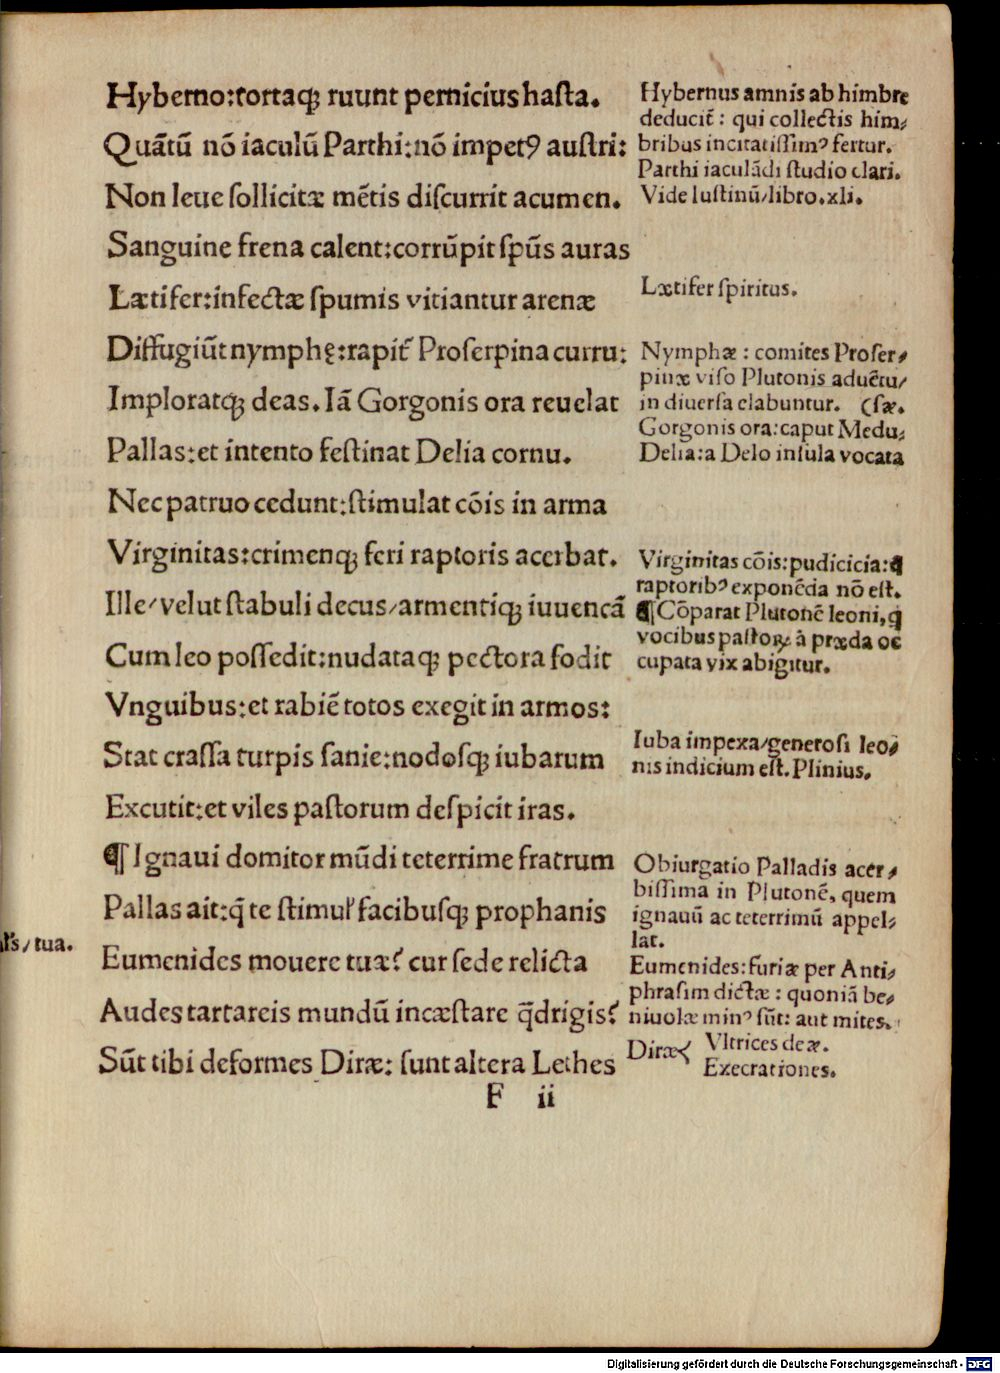 Hyberno:tortaqꝫ ruunt pernicius haſta.
Quãtũ nõ iaculũ Parthi:nõ impetꝰ auſtri:
Non leue ſollicitæ mẽtis diſcurrit acumen.
Sanguine frena calent:corrũpit ſpũs auras
Lætifer:infectæ ſpumis vitiantur arenæ
Diffugiũt nymphę:rapit᷑ Proſerpina curru:
Imploratqꝫ deas. Iã Gorgonis ora reuelat
Pallas:et intento feſtinat Delia cornu.
Nec patruo cedunt:ſtimulat cõis in arma
Virginitas:crimenqꝫ feri raptoris acerbat.
Ille/velut ſtabuli decus/armentiqꝫ iuuencã
Cum leo poſſedit:nudataqꝫ pectora fodit
Vnguibus:et rabiẽ totos exegit in armos:
Stat craſſa turpis ſanie:nodoſqꝫ iubarum
Excutit:et viles paſtorum deſpicit iras.
¶ Ignaui domitor mũdi teterrime fratrum
Pallas ait:q̃ te ſtimuľ facibuſqꝫ prophanis
Eumenides mouere tuæ? cur ſede relicta
Audes tartareis mundũ incæſtare q̃drigis?
Sũt tibi deformes Diræ: ſunt altera Lethes
F ii
Hybernus amnis ab himbre
deducit᷑: qui collectis him/
bribus incitatiſſimꝰ fertur.
Parthi iaculãdi ſtudio clari.
Vide Iuſtinũ/libro.xli.
Lætifer ſpiritus.
Nymphæ: comites Proſer/
pinæ viſo Plutonis aduẽtu/
in diuerſa elabuntur. (ſæ.
Gorgonis ora:caput Medu/
Delia:a Delo inſula vocata
Virginitas cõis:pudicicia:¶
raptoribꝰ exponẽda nõ eſt.
¶ Cõparat Plutonẽ leoni, q̃
vocibus paſtoꝝ à præda oc
cupata vix abigitur.
Iuba impexa/generoſi leo/
nis indicium eſt. Plinius.
Obiurgatio Palladis acer/
biſſima in Plutonẽ, quem
ignauũ ac teterrimũ appel/
lat.
Eumenides:furiæ per Anti/
phraſim dictæ: quoniã be/
niuolæ minꝰ ſũt: aut mites.
Diræ< Vltrices deæ.
Execrationes.
tua.
Digitalisierung gefördert durch die Deutsche Forschungsgemeinschaft - DFG